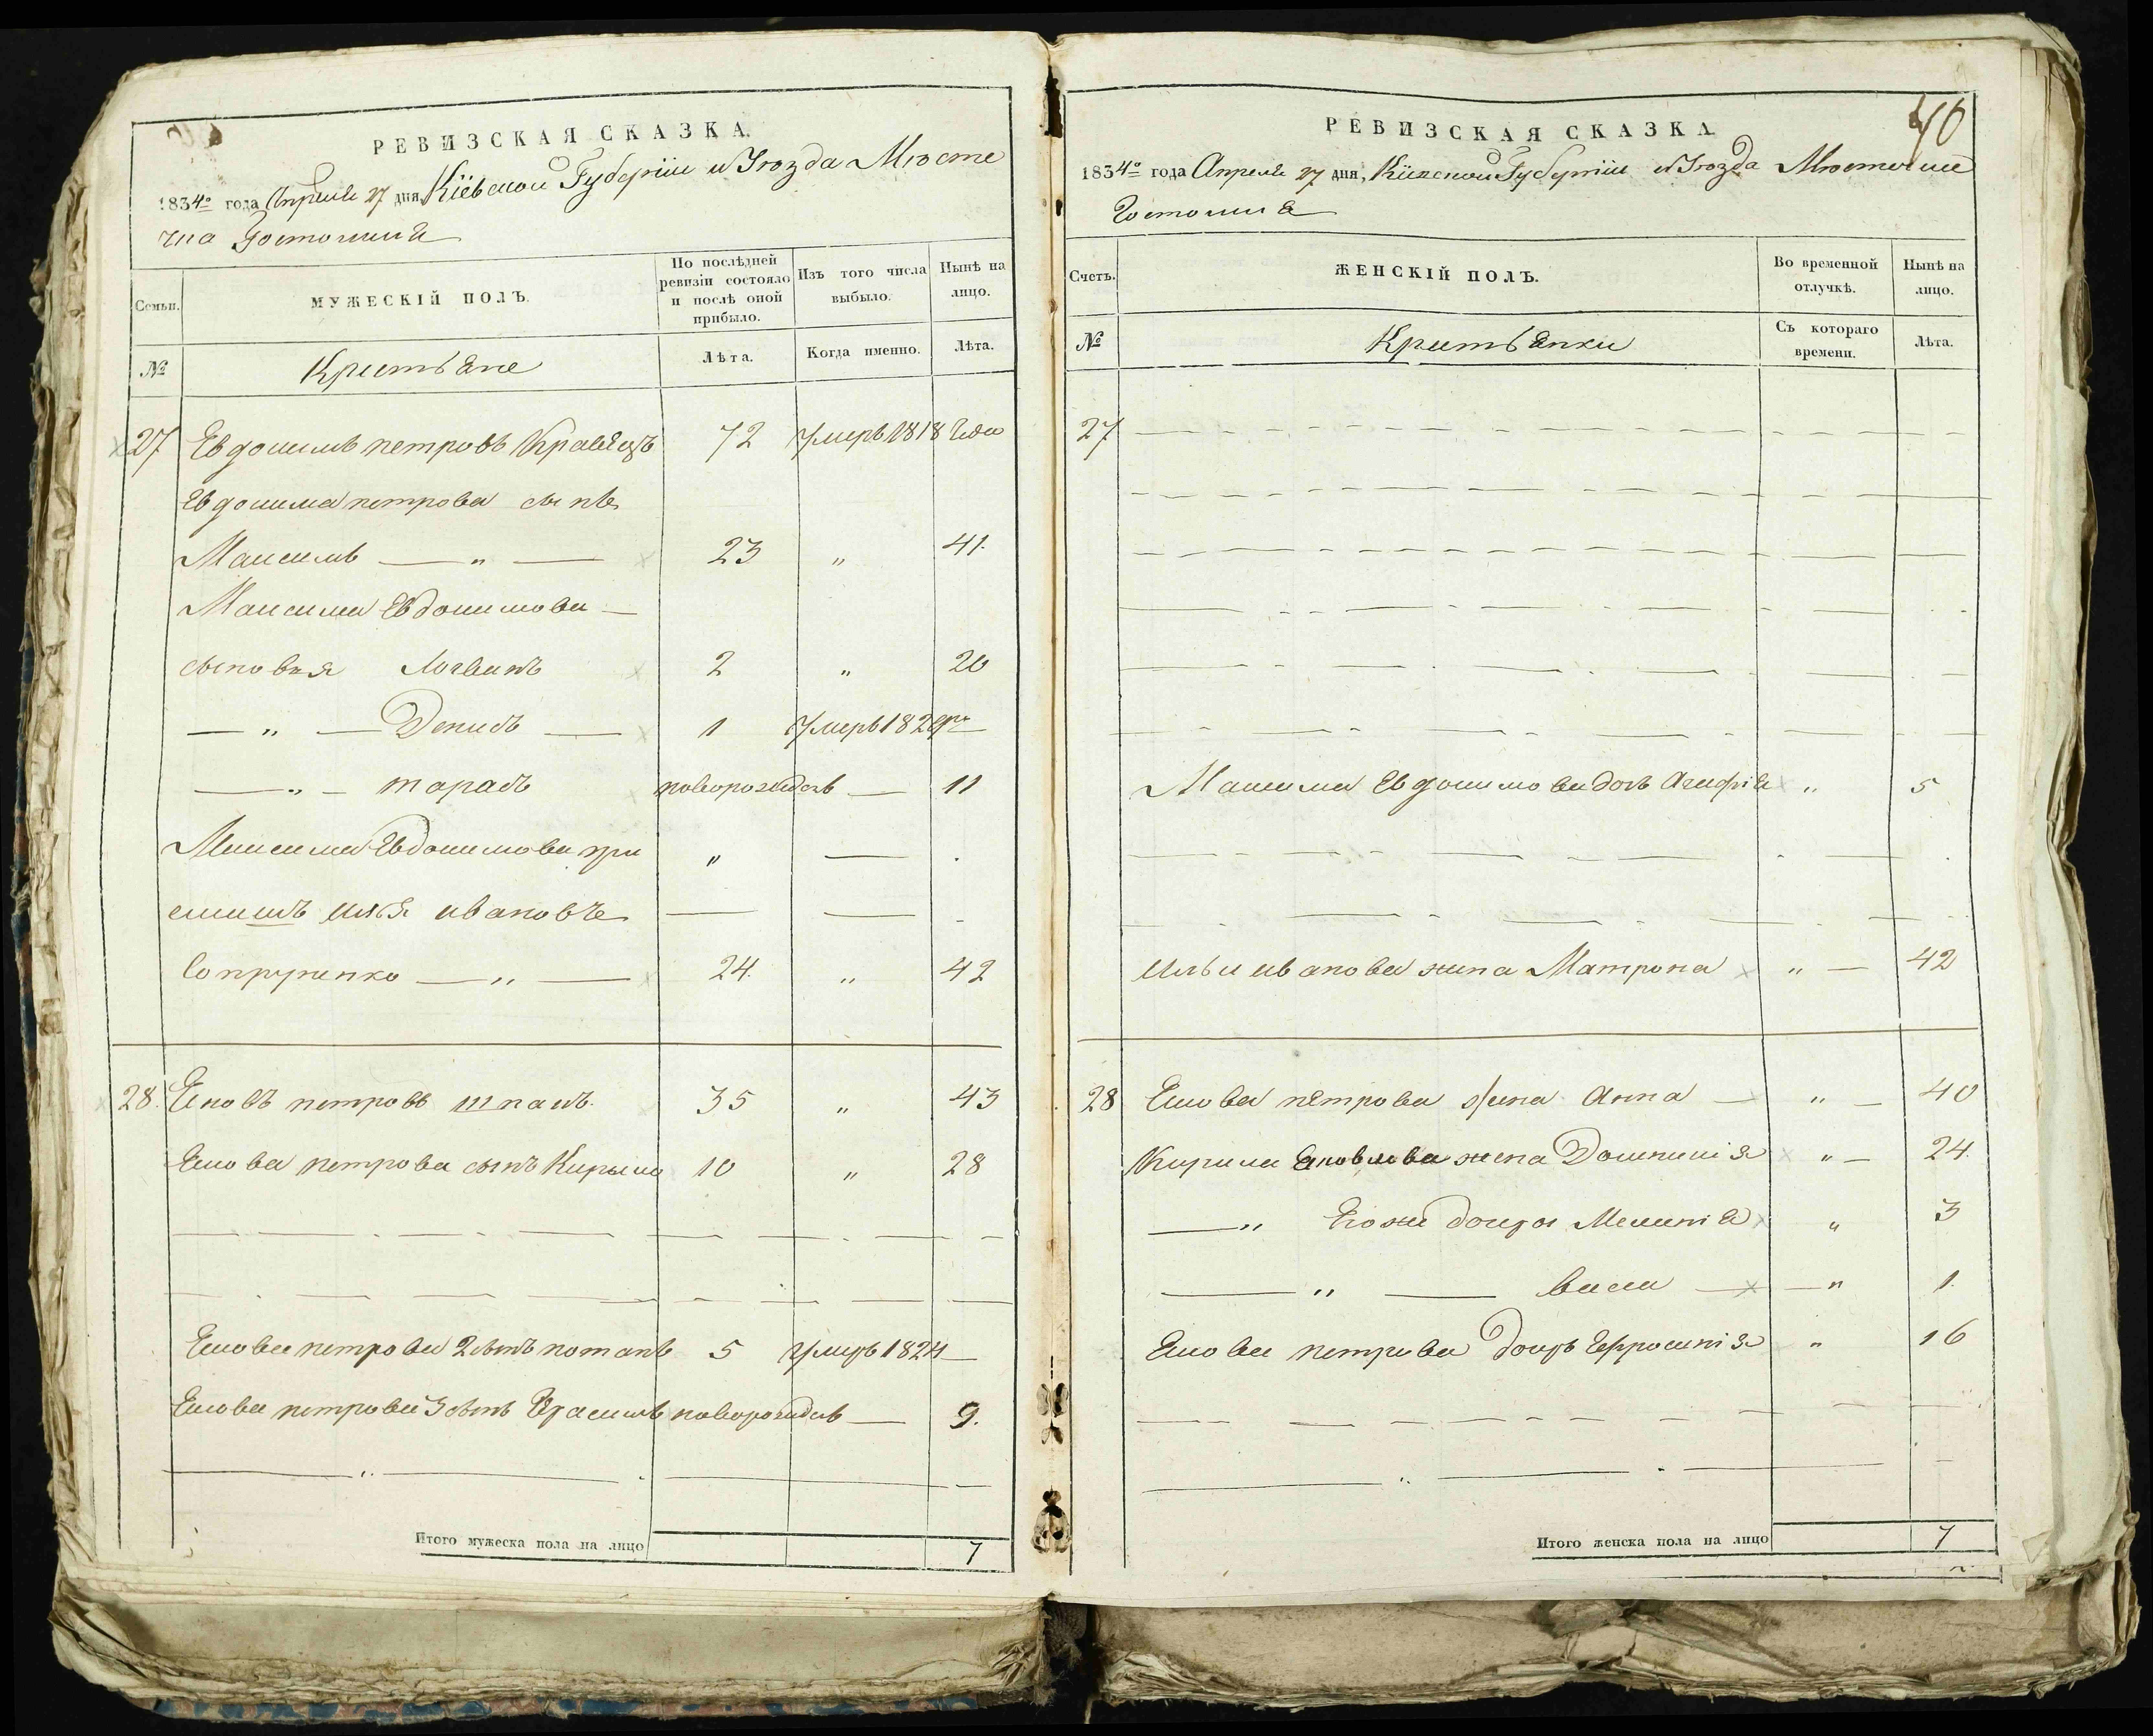 РЕВИЗСКАЯ СКАЗКА.
1834го года Апреля 27 дня, Кіевской Губерніи и Уезда Месте
чка Гостомля
Семьи.
МУЖЕСКІЙ ПОЛЪ.
По послѣдней ревизіи состояло и послѣ оной прибыло.
Изъ того числа выбыло.
Нынѣ на лицо.
№
Крестьяне
Лѣта.
Когда именно.
Лѣта.
27 Евдокимъ петровъ Кравецъ 72 Умеръ 1818 года
Евдокима петрова сынъ
Максимъ — " — 23 " 41.
Максима Евдокимова —
сыновья Логвинъ 2 " 20
— " — Денисъ — 1 Умеръ
— " — тарасъ новорождѣ — 11
Максима Евдокимова при " — .
Илья ивановъ — —
Сопруненко — " — 24. " 42
28. Ековъ петровъ шпакъ. 35 " 43
Екова петрова сынъ Кирыло 10 " 28
Екова петрова 2 сынъ потапъ 5 Умеръ 1824 —
Екова петрова 3 сынъ Герасимъ новорождѣ — 9.
Итого мужеска пола на лицо 7
40
РЕВИЗСКАЯ СКАЗКА.
1834го года Апреля 27 дня, Кіевской Губерніи и Уезда Местечка
Гостомля
Счетъ.
ЖЕНСКІЙ ПОЛЪ.
Во временной отлучкѣ.
Нынѣ на лицо.
№
Крестьянки
Съ котораго времени.
Лѣта.
27
Максима Евдокимова дочь Агафія " 5
Ильи иванова жена Матрона " — 42
28 Екова петрова жена Анна — " — 40
Кирила Ековлева жена Домникія " — 24.
— " Егоже дочери Меланія " 3
— " — васса — — " 1.
Екова петрова дочь Ефросинія " 16
Итого женска пола на лицо 7